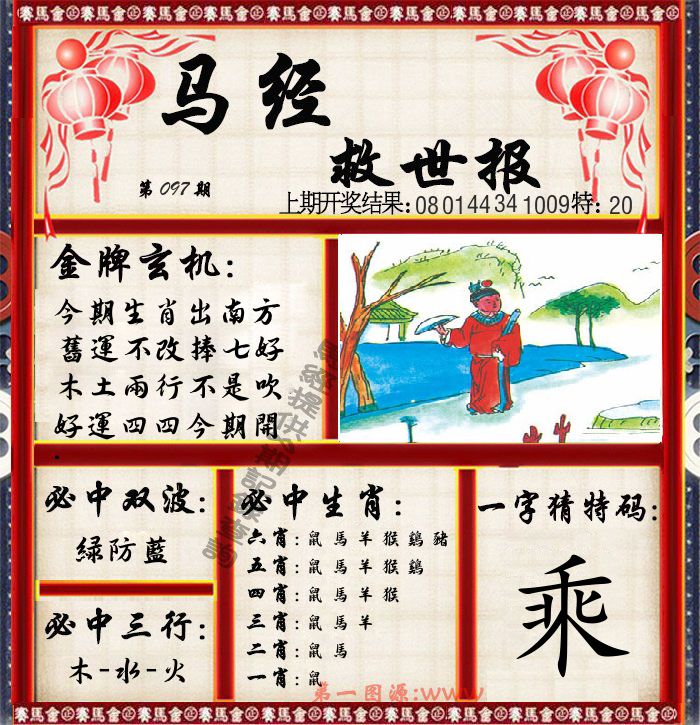 賽馬會正賽馬會正賽馬會正賽馬會正賽馬會正賽馬會正賽馬會
马经
救世报
第097期
上期开奖结果：080144341009特：20
金牌玄机：
今期生肖出南方
舊運不改捧七好
木土兩行不是吹
好運四四今期開
必中双波：
緑防藍
必中三行：
木-水-火
必中生肖：
六肖：鼠馬羊猴鷄豬
五肖：鼠馬羊猴鷄
四肖：鼠馬羊猴
三肖：鼠馬羊
二肖：鼠馬
一肖：鼠
一字猜特码：
乘
第一图源:www